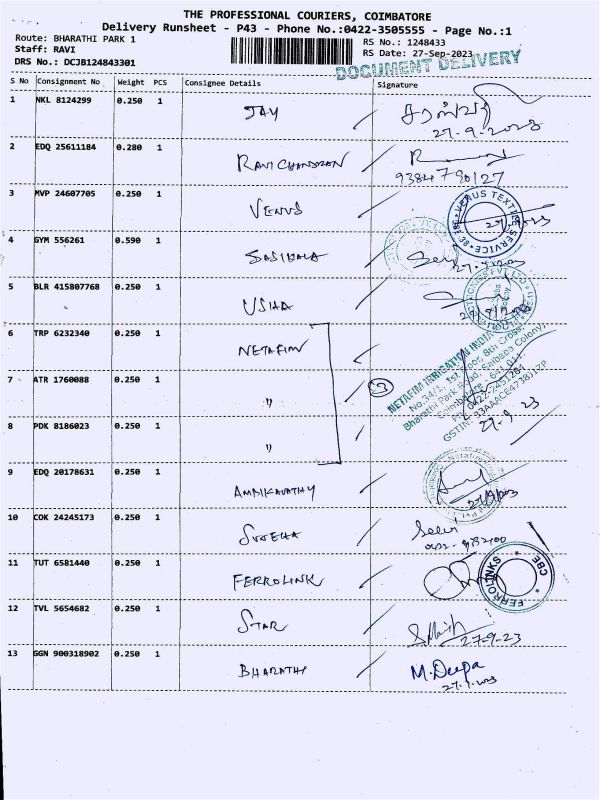 THE PROFESSIONAL COURIERS, COIMBATORE
Delivery Runsheet - P43 - Phone No.:0422-3505555 - Page No.:1
Route: BHARATHI PARK 1
RS No.: 1248433
Staff: RAVI
RS Date: 27-Sep-2023
DRS No.: DCJB124843301
DOCUMENT DELIVERY
S No Consignment No Weight PCS Consignee Details Signature
1 NKL 8124299 0.250 1 JAY சரஸ்வதி
27-9-2023
2 EDQ 25611184 0.280 1 RAVICHANDRAN
93847 90127
3 MVP 24607705 0.250 1 VENUS
VENUS TEXTILE SERVICE
4 GYM 556261 0.590 1 SASIKALA
5 BLR 415807768 0.250 1 USHA
6 TRP 6232340 0.250 1 NETAFIM
7 ATR 1760088 0.250 1 "
3
8 PDK 8186023 0.250 1 "
NETAFIM IRRIGATION INDIA
No.34/1, 1st Floor, 8th Cross,
Bharathi Park Road, Saibaba Colony,
Coimbatore - 641 011
27-9-23
9 EDQ 20178631 0.250 1
10 COK 24245173 0.250 1 SUJEHA Selvi
11 TUT 6581440 0.250 1 FERROLINK
FERROLINKS CBE
12 TVL 5654682 0.250 1 STAR
27-9-23
13 GGN 900318902 0.250 1 BHARATHI M.Deepa
27-9-2023